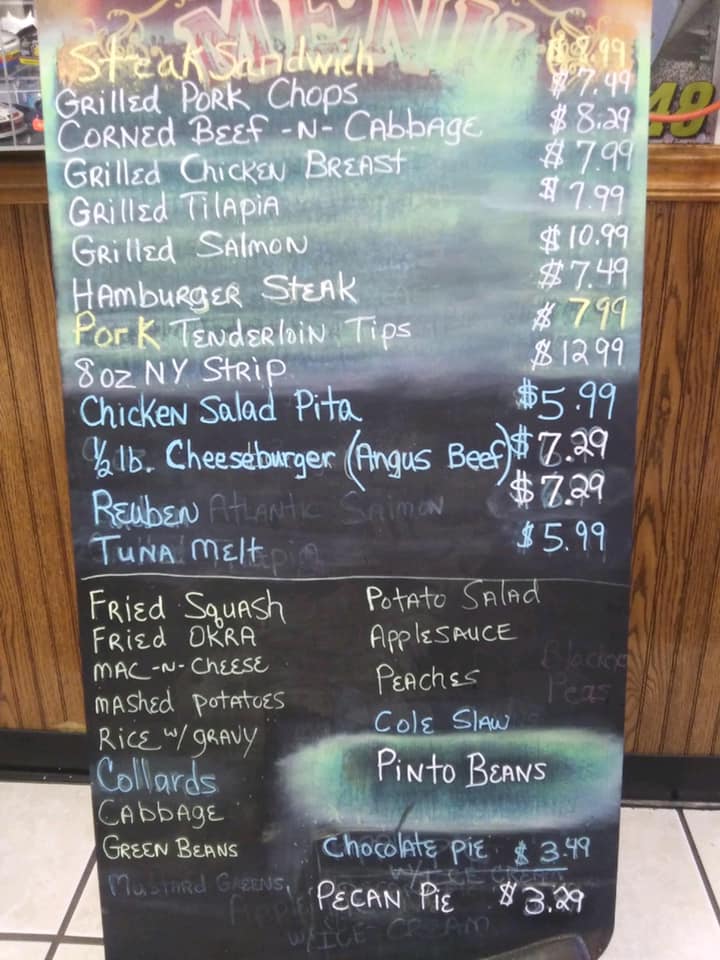 MENU
Steak Sandwich $8.99
Grilled Pork Chops $7.49
Corned Beef -N- Cabbage $8.29
Grilled Chicken Breast $7.99
Grilled Tilapia $7.99
Grilled Salmon $10.99
Hamburger Steak $7.49
Pork Tenderloin Tips $799
8oz NY Strip $1299
Chicken Salad Pita $5.99
1/2 lb. Cheeseburger (Angus Beef) $7.29
Reuben Atlantic Salmon $7.29
Tuna Melt $5.99
Fried Squash
Fried Okra
Mac-N-Cheese
Mashed Potatoes
Rice w/ gravy
Collards
Cabbage
Green Beans
Mustard Greens,
Potato Salad
Applesauce
Peaches
Peas
Cole Slaw
Pinto Beans
Chocolate Pie $3.49
w/ ice cream
Pecan Pie $3.29
w/ICE CREAM
48